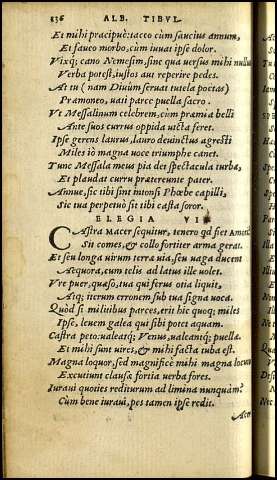 836 ALB. TIBVL.
Et mihi præcipuè: tacco cùm saucius annum,
Et faueo morbo, cùm iuuat ipse dolor.
Vixq; cano Nemesim, sine qua uersus mihi nullus
Verba potest, iustos aut reperire pedes.
At tu (nam Diuûm seruat tutela poetas)
Præmoneo, uati parce puella sacro.
Vt Messalinum celebrem, cùm præmia belli
Ante suos currus oppida uicta feret.
Ipse gerens laurus, lauro deuinctus agresti
Miles iò magna uoce triumphe canet.
Tunc Messala meus pia det spectacula turbæ,
Et plaudat curru prætereunte pater.
Annue, sic tibi sint intonsi Phœbe capilli,
Sic tua perpetuò sit tibi casta soror.
ELEGIA VI
CAstra Macer sequitur, tenero qd fiet Amori?
Sit comes, & collo fortiter arma gerat.
Et seu longa uirum terræ uia, seu uaga ducent
Aequora, cum telis ad latus ille uolet.
Vre puer, quæso, tua qui ferus otia liquit,
Atq; iterum erronem sub tua signa uoca.
Quòd si militibus parces, erit hic quoq; miles
Ipse, leuem galea qui sibi potet aquam.
Castra peto: ualeatq; Venus, ualeantq; puellæ.
Et mihi sunt uires, & mihi facta tuba est.
Magna loquor, sed magnificè mihi magna locuto
Excutiunt clausæ fortia uerba fores.
Iuraui quoties rediturum ad limina nunquàm?
Cùm bene iuraui, pes tamen ipse redit.